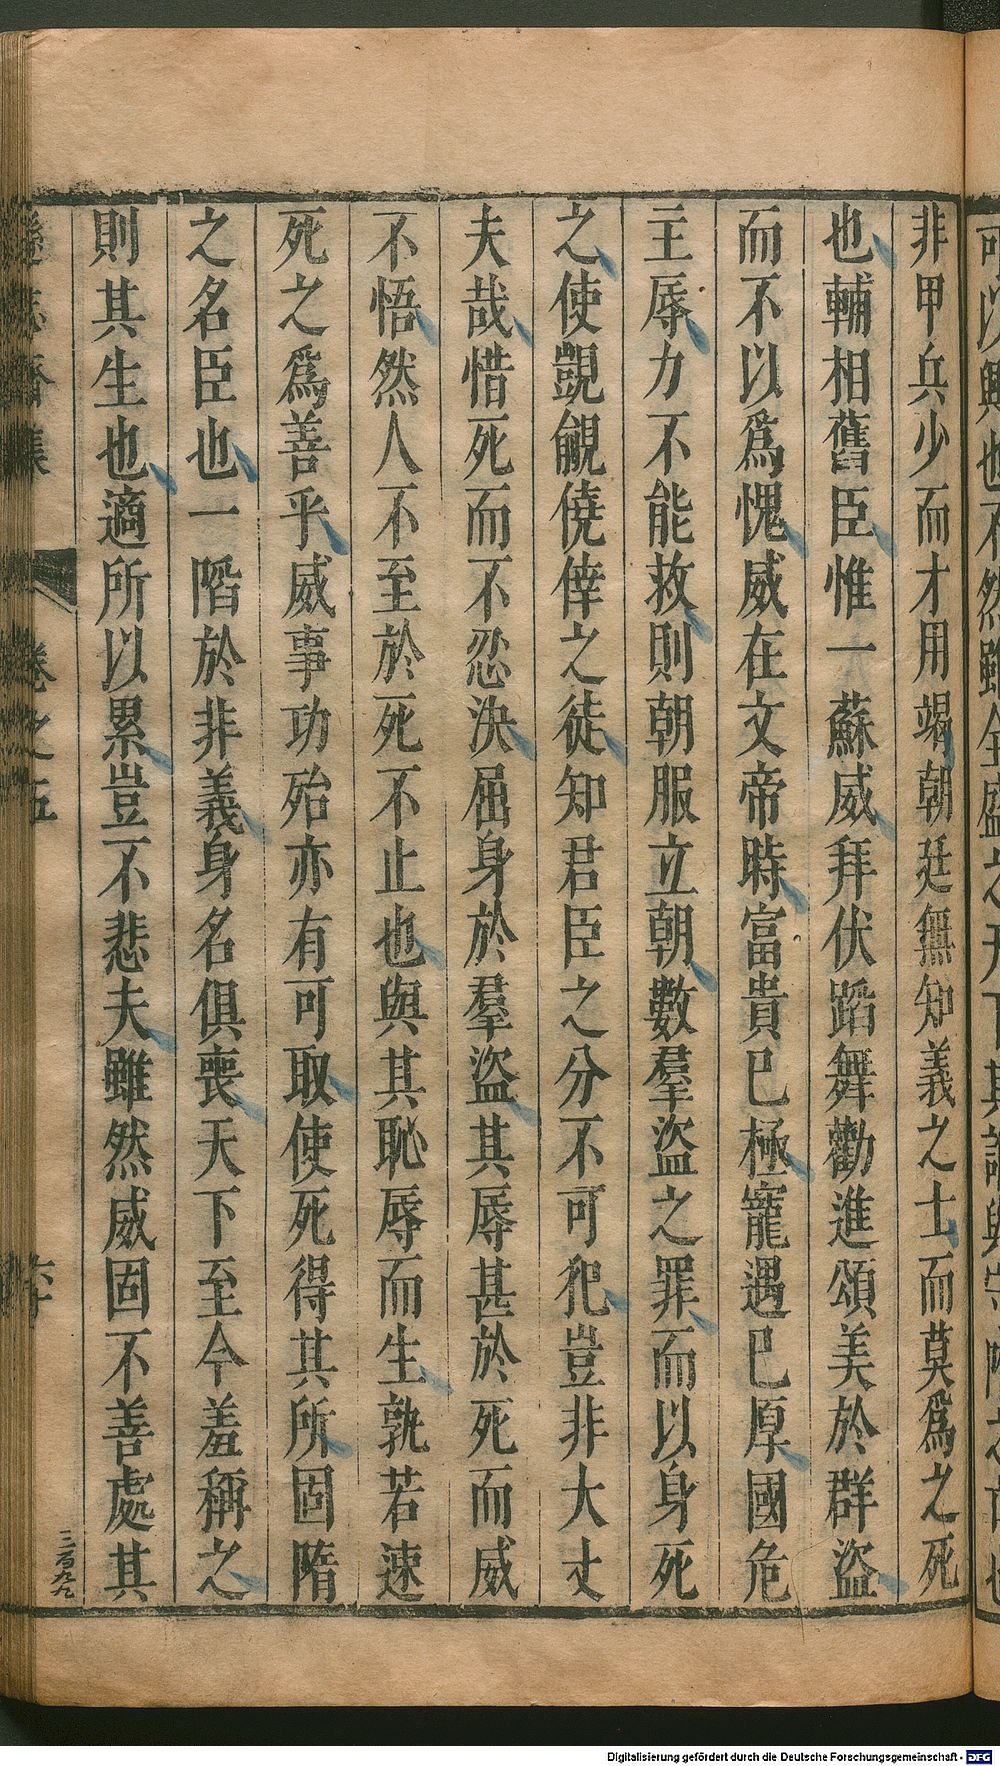 非甲兵少而才用竭朝廷無知義之士而莫爲之死
也輔相舊臣惟一蘇威拜伏蹈舞勸進頌美於群盜
而不以爲愧威在文帝時富貴已極寵遇已厚國危
主辱力不能救則朝服立朝數羣盜之罪而以身死
之使覬覦僥倖之徒知君臣之分不可犯豈非大丈
夫哉惜死而不忍決屈身於羣盜其辱甚於死而威
不悟然人不至於死不止也與其恥辱而生孰若速
死之爲善乎威事功殆亦有可取使死得其所固隋
之名臣也一陷於非義身名俱喪天下至今羞稱之
則其生也適所以累豈不悲夫雖然威固不善處其
遜志齋集 卷之五
三百九九
Digitalisierung gefördert durch die Deutsche Forschungsgemeinschaft - DFG